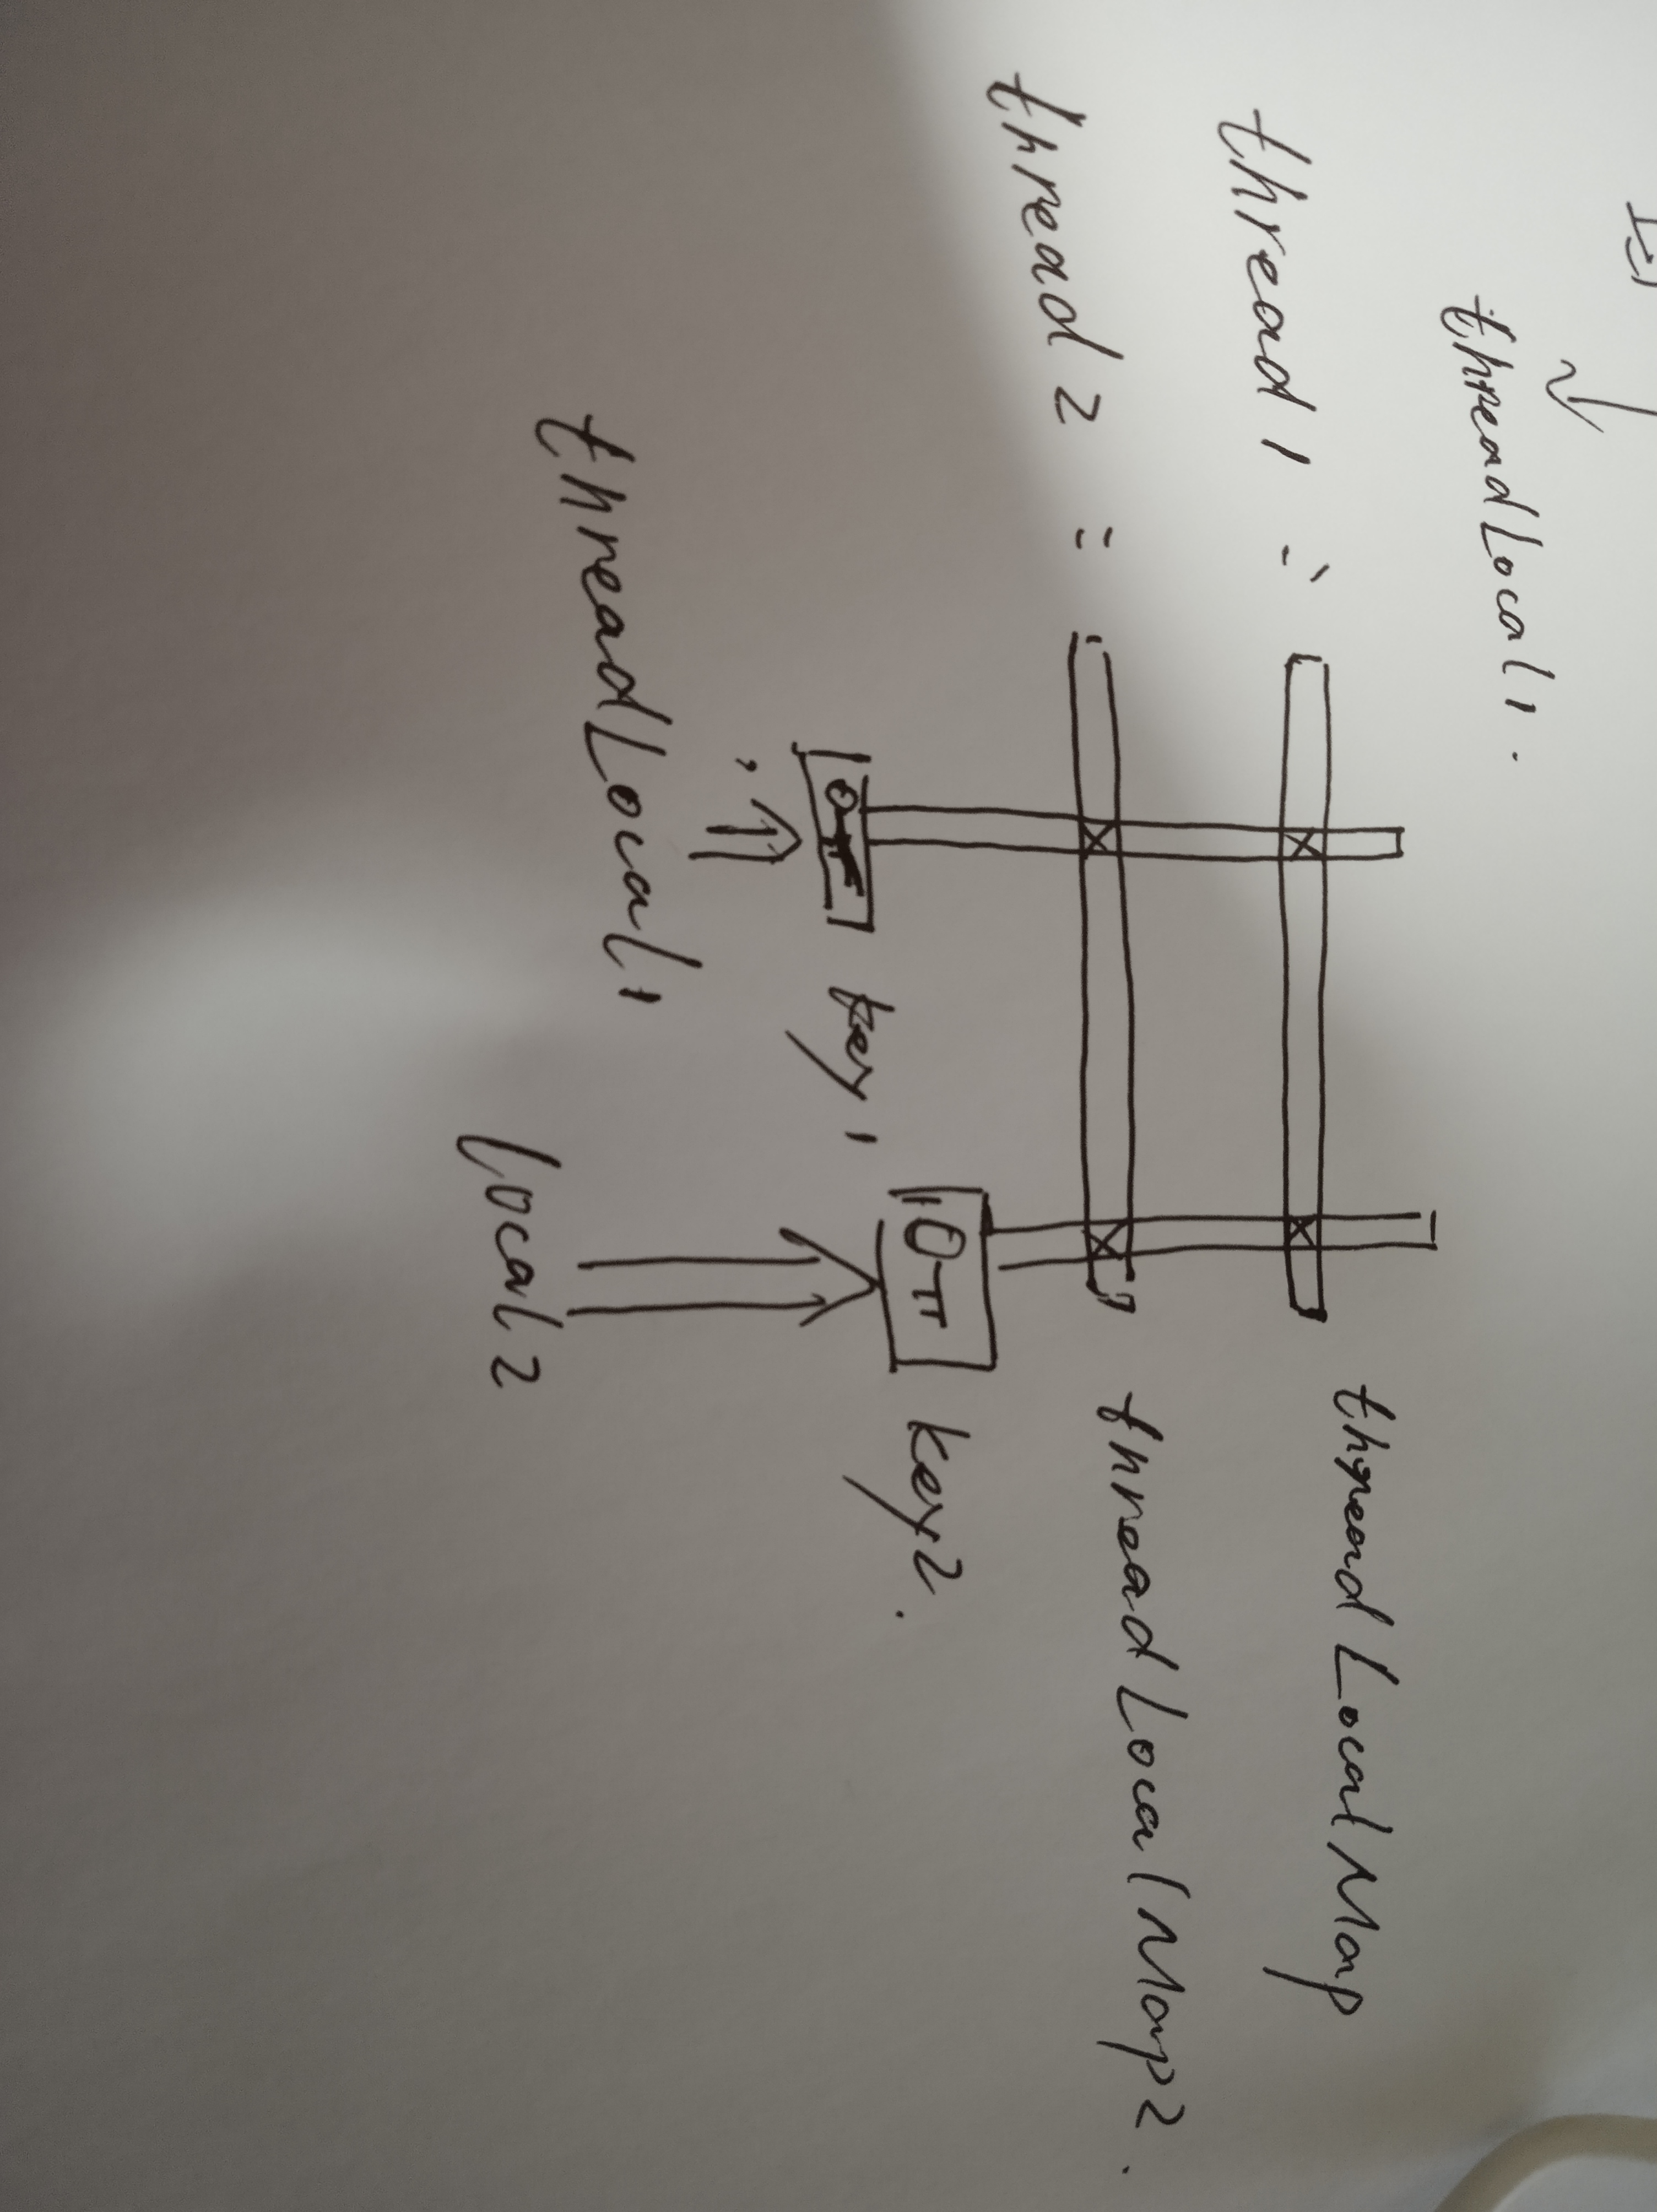 threadLocal1.
thread1 : threadLocalMap
thread2 : threadLocalMap2.
key1 key2.
threadLocal1 local2